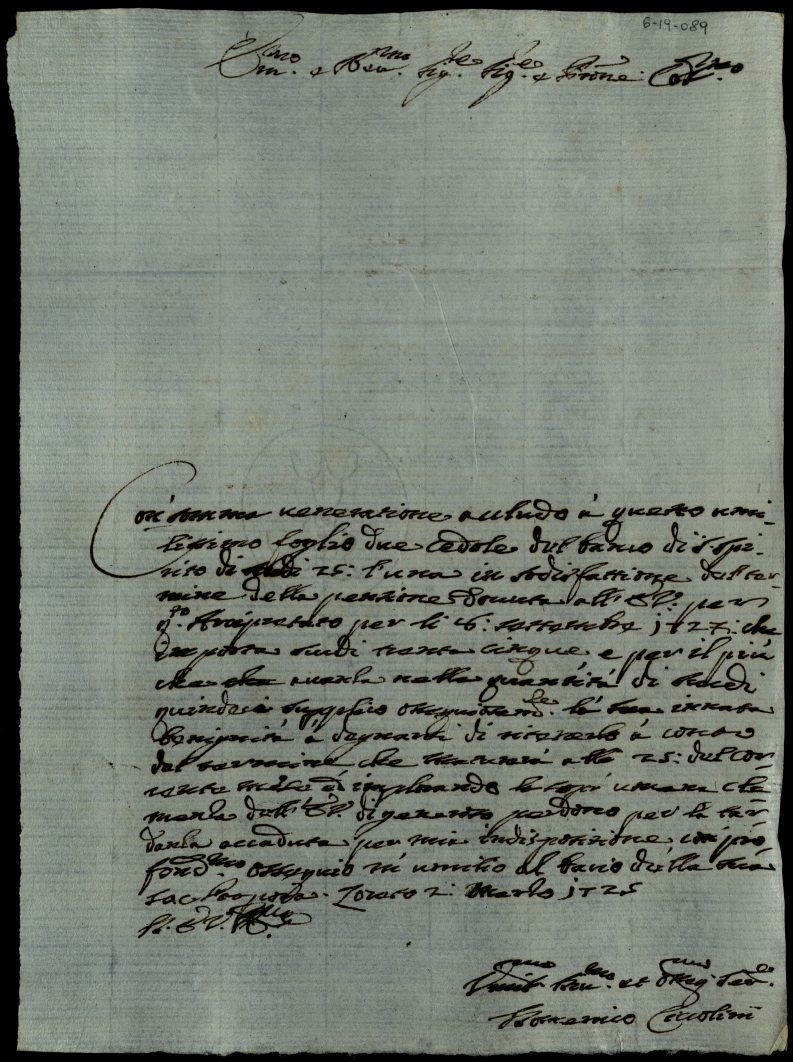 6-19-089
Em.mo e Rev.mo Sig.re Sig.re e Prone Col.mo
Con somma veneratione accludo à questo umi-
lissimo foglio due cedole del banco di S. Spi-
rito di scudi 25: l'una in sodisfattione del ter-
mine della pensione dovuta all' E.V. per
q.to Arcipretato per li 6: settembre 1727: che
importa scudi trenta cinque e per il più
che avanza nella quantità di scudi
quindeci supplico ossequiosam.te la sua innata
benignità à degnarsi di riceverlo à conto
del termine che maturerà alli 25: del cor-
rente implorando la umana cle-
menza dell' E.V. di generoso perdono per la tar-
danza accaduta per mia indisposizione, con pro-
fond.mo ossequio m' umilio al bacio della sua
sac. Porpora. Loreto 2: Marzo 1725
Di E.V.
Umil.mo Dev.mo et Obblig.mo Ser.re
Domenico Ciccolini